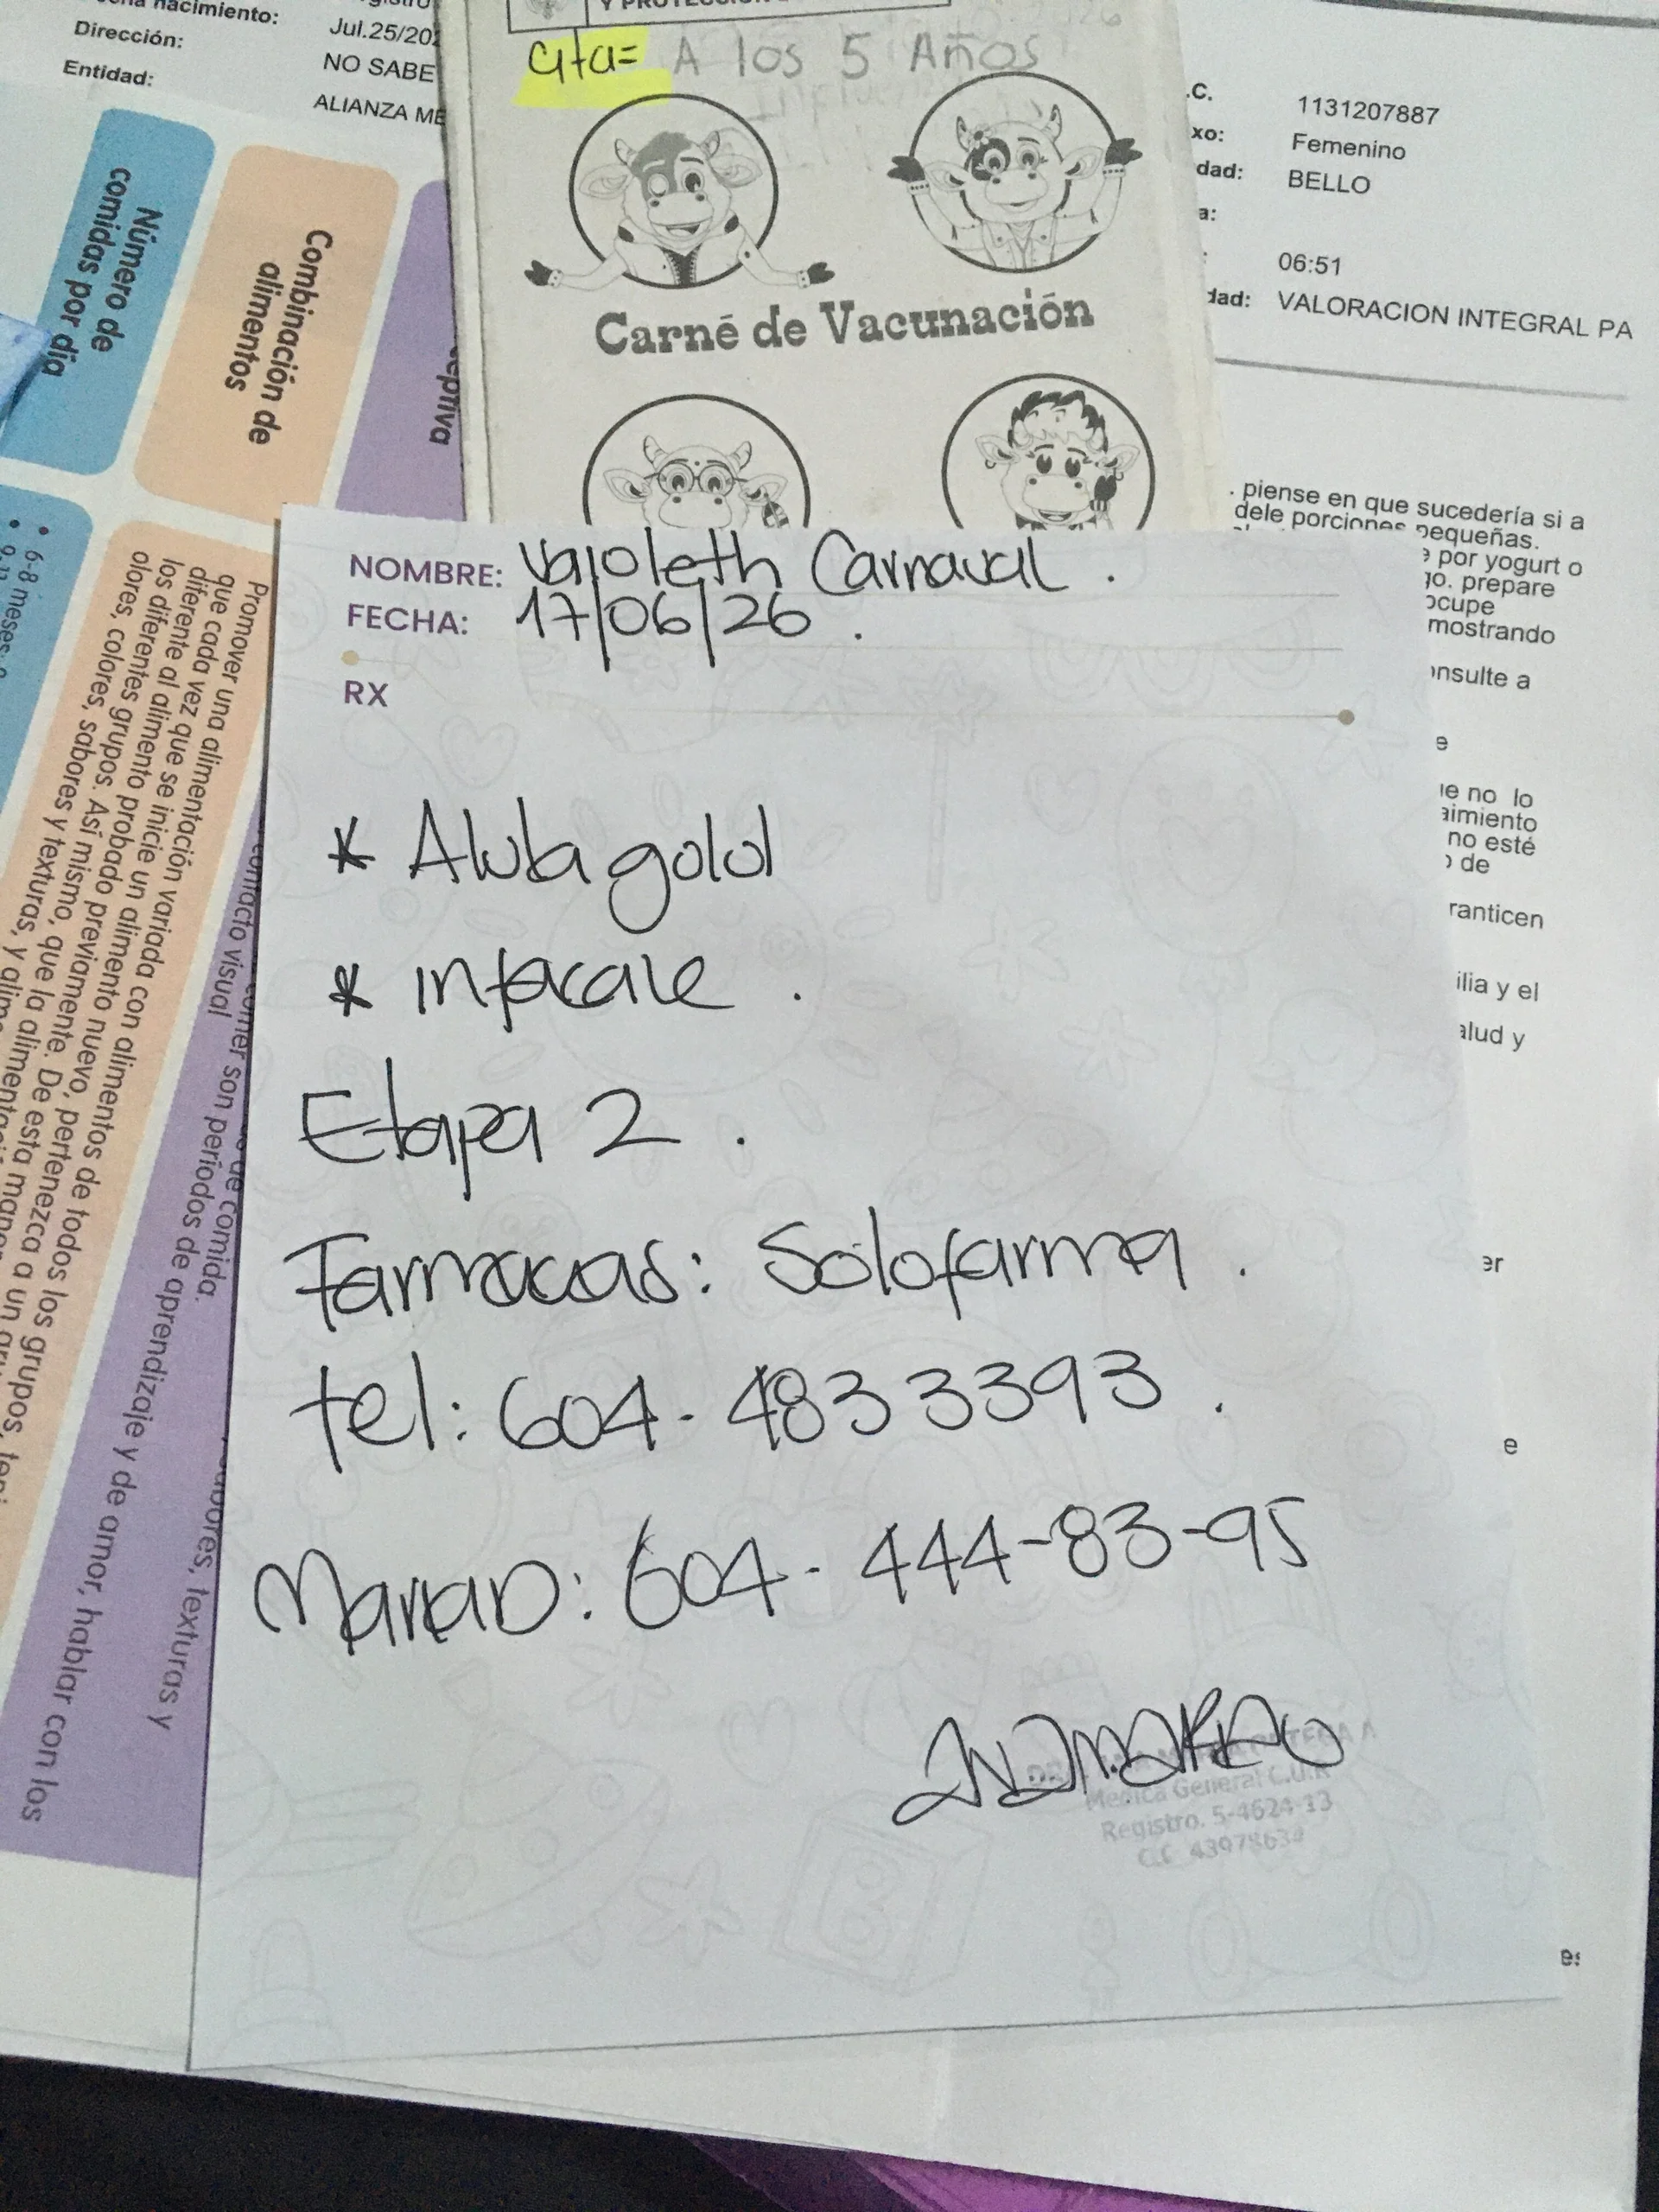 nacimiento:
Dirección:
Entidad:
Jul.25/202
NO SABE
ALIANZA ME
cita= A los 5 Años
Carné de Vacunación
.C. 1131207887
xo: Femenino
dad: BELLO
a:
: 06:51
dad: VALORACION INTEGRAL PA
Número de
comidas por día
Combinación de
alimentos
eptiva
6-8 meses:
Promover una alimentación variada con alimentos de todos los grupos,
que cada vez que se inicie un alimento nuevo, pertenezca a un
diferente al alimento probado previamente. De esta
los diferentes grupos. Así mismo, que la
olores, colores, sabores y texturas, y
contacto visual
comer son períodos de aprendizaje y de amor, hablar con los
de comida.
texturas y
. piense en que sucedería si a
dele porciones pequeñas.
por yogurt o
go. prepare
ocupe
mostrando
onsulte a
e
ue no lo
aimiento
no esté
o de
ranticen
ilia y el
alud y
er
e
es
NOMBRE: Vaioleth Carnaval.
FECHA: 17/06/26.
RX
* infacare.
Etapa 2.
Farmacias: Solofarma.
tel: 604-4833393.
604-444-83-95
Medica General C.U.R
Registro. 5-4624-13